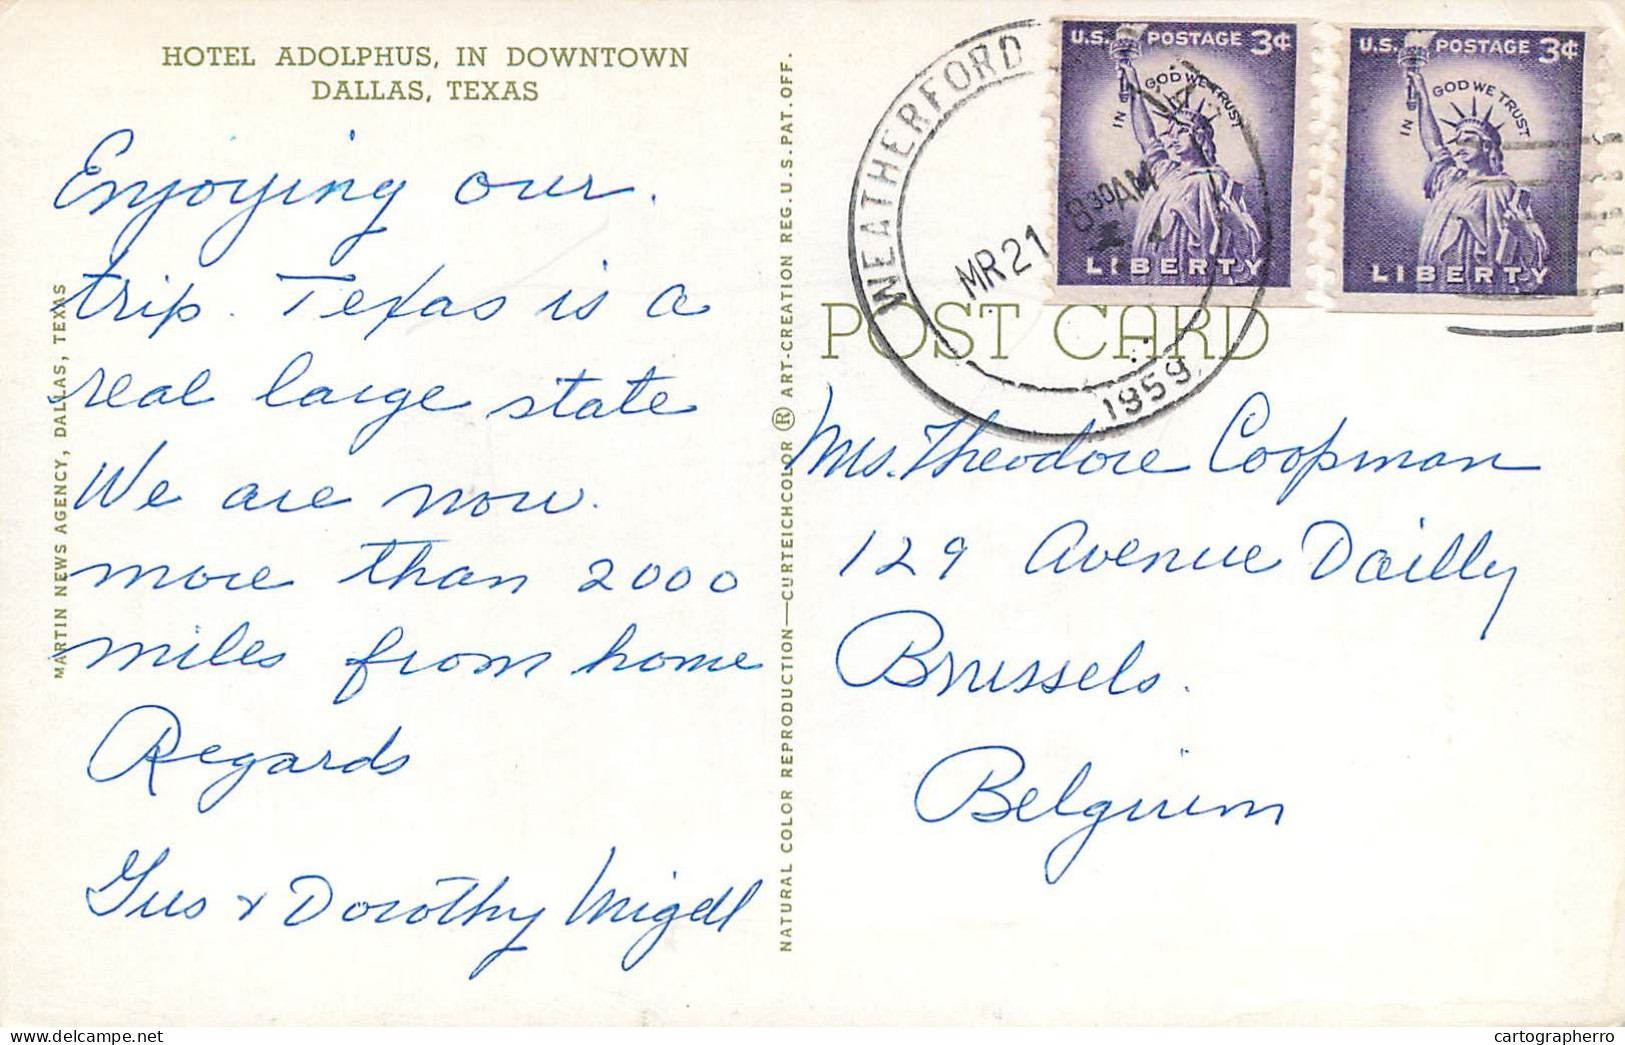 HOTEL ADOLPHUS, IN DOWNTOWN
DALLAS, TEXAS
Enjoying our
trip. Texas is a
real large state
We are now
more than 2000
miles from home
Regards
Gus & Dorothy
MARTIN NEWS AGENCY, DALLAS, TEXAS
NATURAL COLOR REPRODUCTION—CURTEICHCOLOR ® ART-CREATION REG. U.S. PAT. OFF.
WEATHERFORD
MR 21
8 30 AM
1959
U.S. POSTAGE 3¢
IN GOD WE TRUST
LIBERTY
U.S. POSTAGE 3¢
IN GOD WE TRUST
LIBERTY
POST CARD
Theodore Coopman
129 Avenue Dailly
Brussels.
Belgium
cartographerro